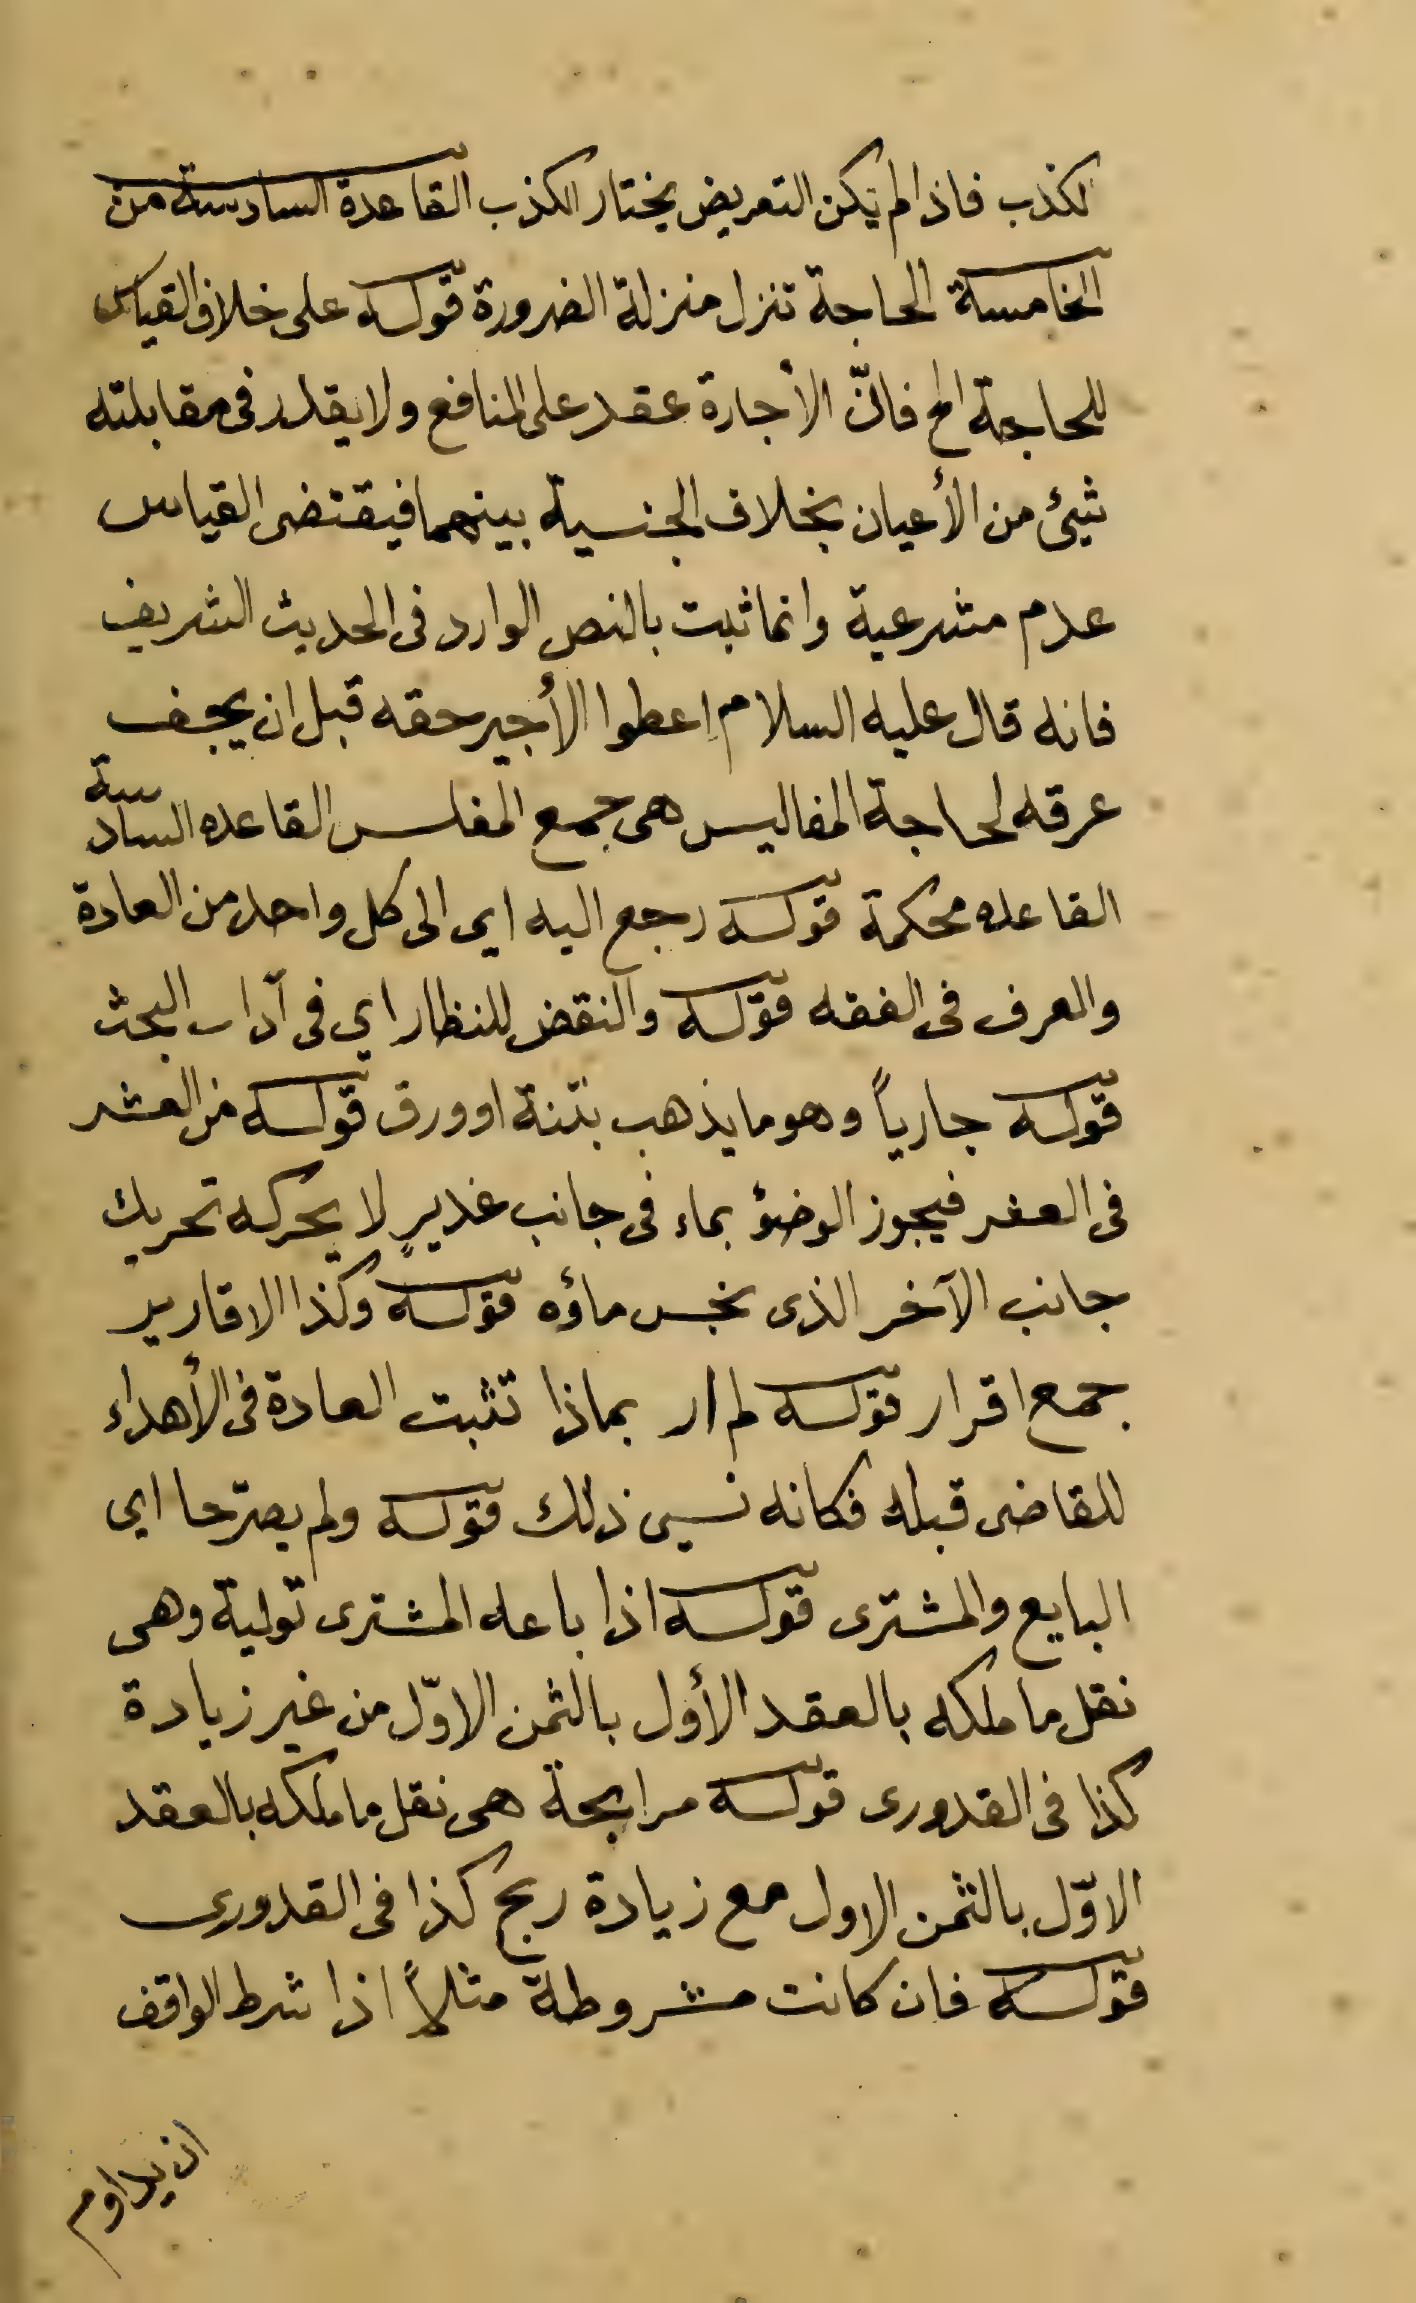 الكذب فاذا لم يكن التعريض يختار الكذب القاعدة السادسة من
الخامسة الحاجة تنزل منزلة الضرورة قوله على خلاف القياس
للحاجة الخ فانّ الأجارة عقد على المنافع ولا يقدر فى مقابلته
شيئ من الأعيان بخلاف الجنسية بينهما فيقتضى القياس
عدم مشرعية وانما ثبت بالنص الوارد فى الحديث الشريف
فانه قال عليه السلام اعطوا الأجير حقه قبل ان يجف
عرقه لحاجة المفاليس هى جمع المفلس القاعده السادسة
القاعده محكمة قوله رجع اليه اى الى كل واحد من العادة
والعرف فى الفقه قوله والنقض للنظار اي فى آداب البحث
قوله جارياً وهو ما يذهب بتبنة او ورق قوله من العشر
فى العشر فيجوز الوضؤ بماء فى جانب غديرٍ لا يحركه تحريك
جانب الآخر الذى نجس ماؤه قوله وكذا الاقارير
جمع اقرار قوله لم ار بماذا تثبت العادة فى الأهداء
للقاضى قبله فكانه نسى ذلك قوله ولم يصرّحا اى
البايع والمشترى قوله اذا باعه المشترى تولية وهى
نقل ما ملكه بالعقد الأول بالثمن الاوّل من غير زيادة
كذا فى القدورى قوله مرابحة هى نقل ما ملكه بالعقد
الاوّل بالثمن الاول مع زيادة ربح كذا فى القدورى
قوله فان كانت مشروطة مثلاً اذا شرط الواقف
ان يداوم